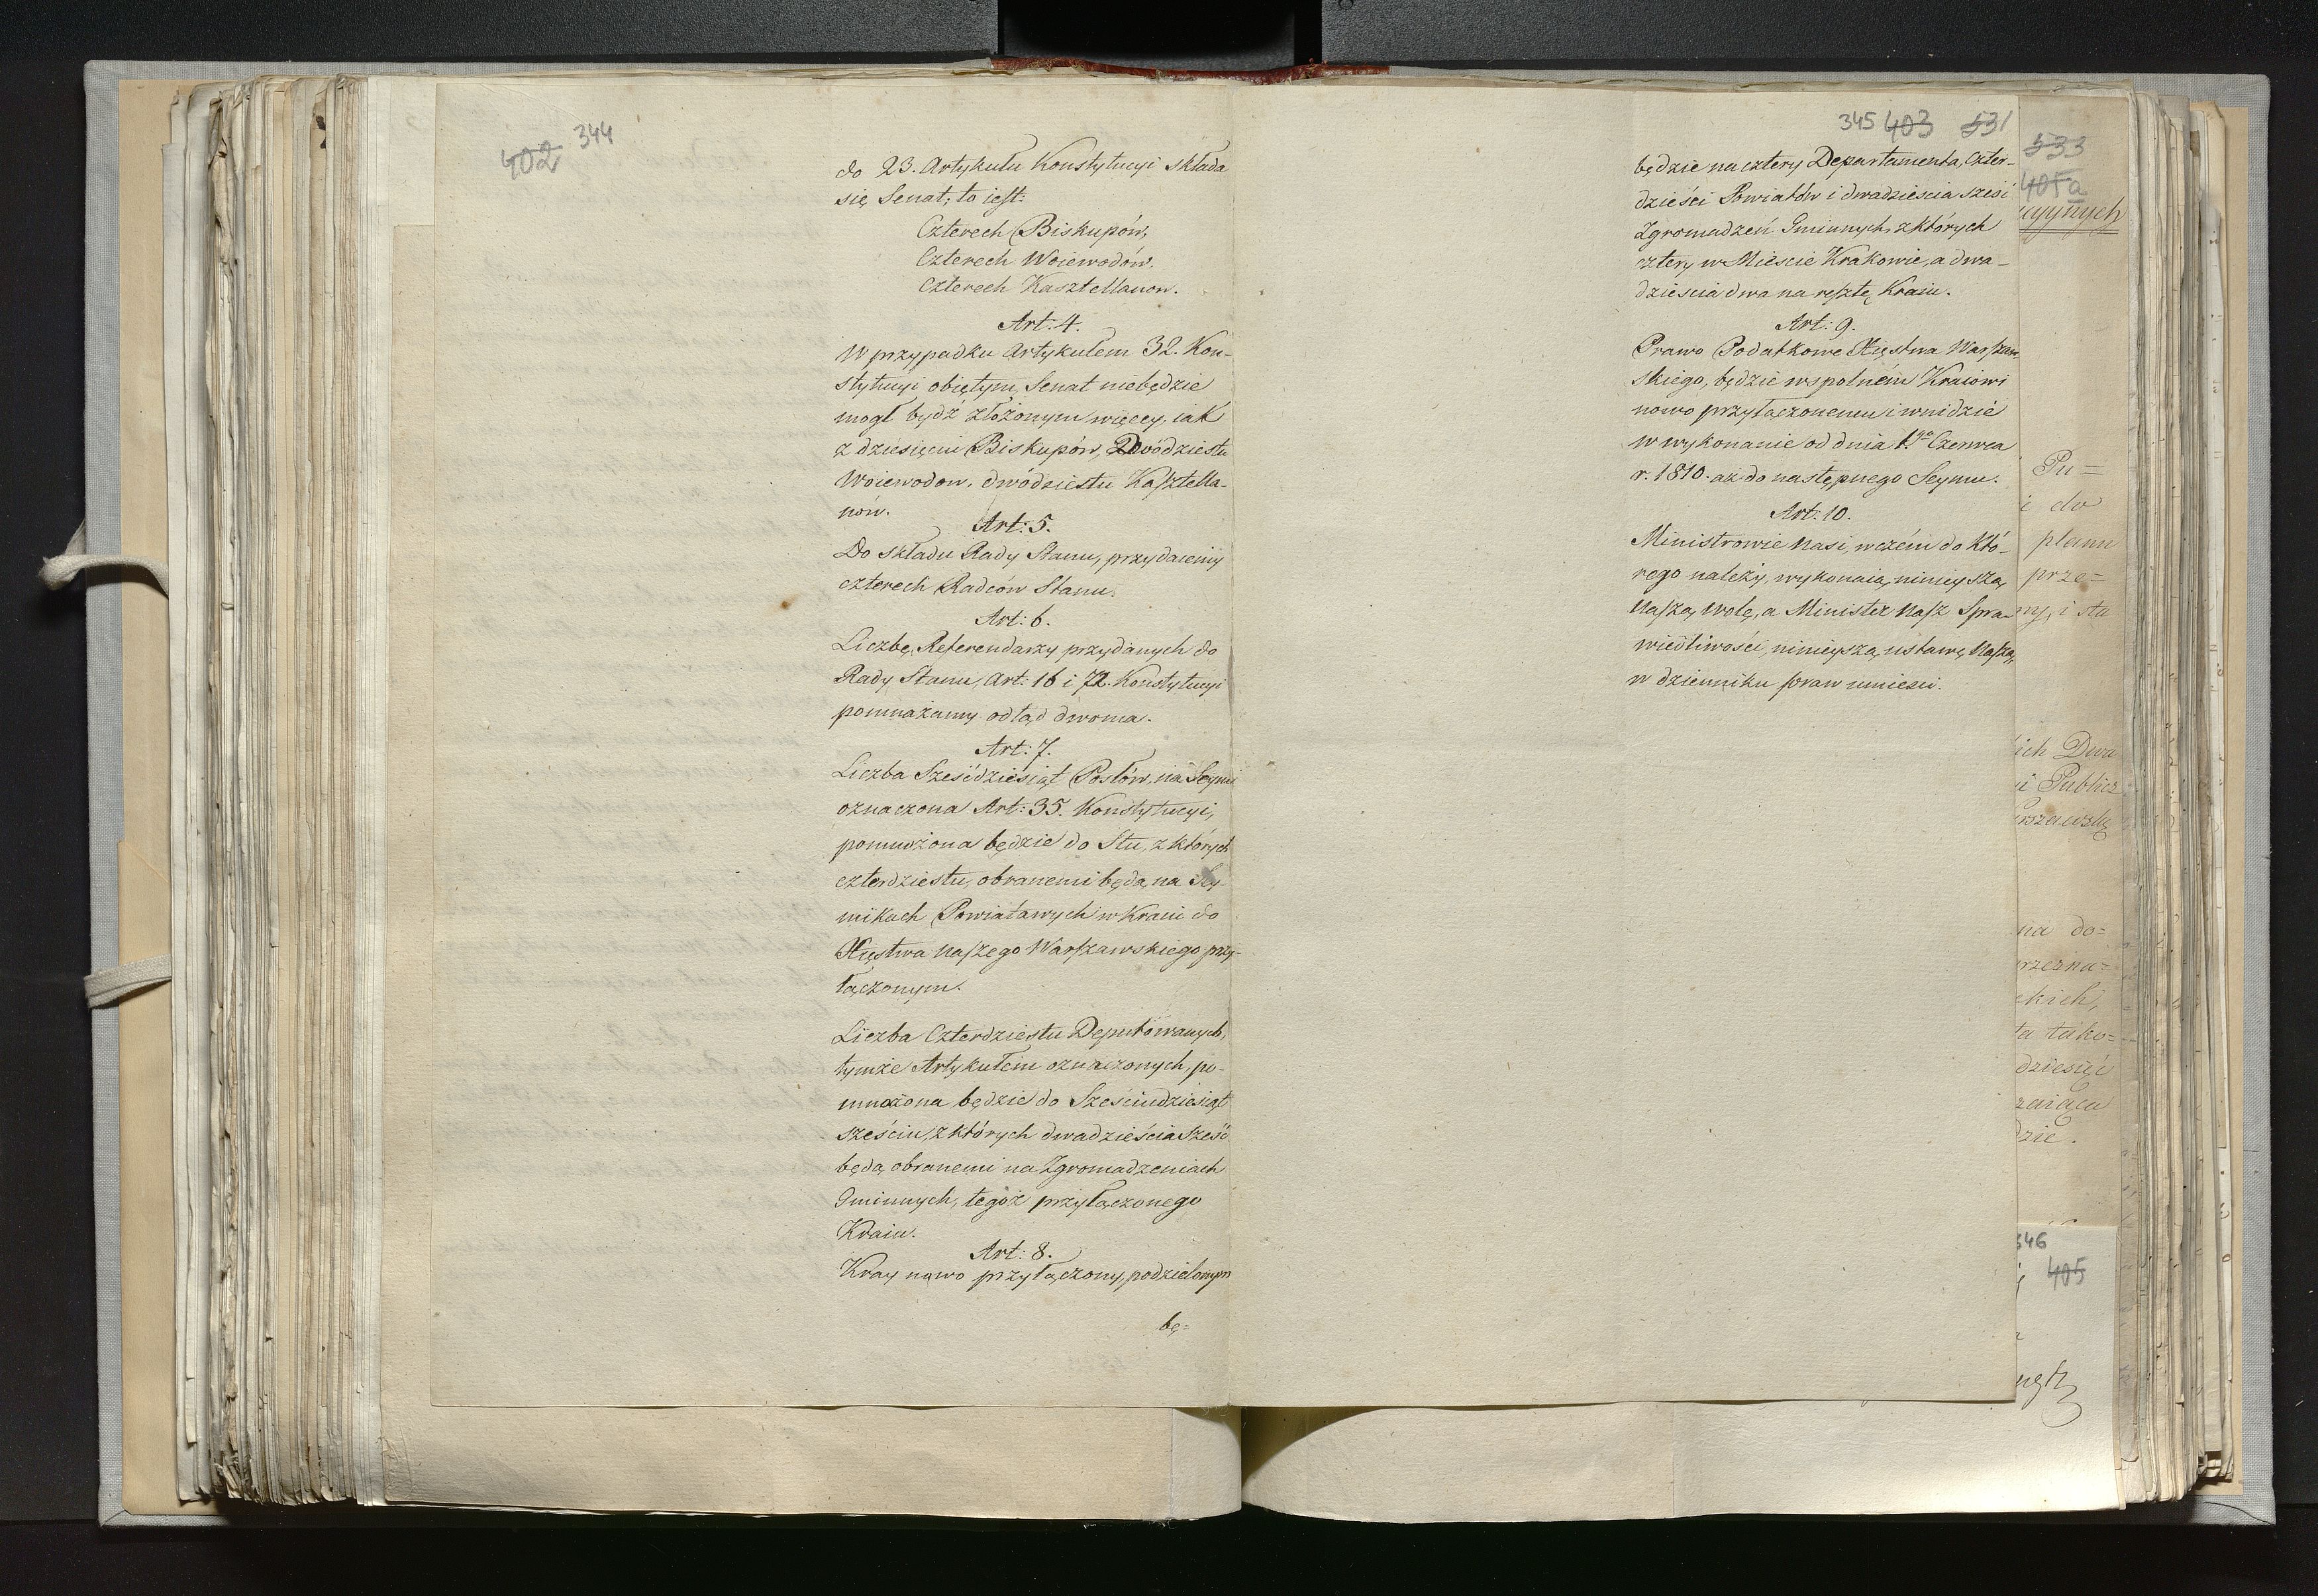 402 344
do 23. Artykułu Konstytucyi składa
się Senat; to iest:
Czterech Biskupów,
Czterech Woiewodów,
Czterech Kasztellanow.
Art: 4.
W przypadku Artykułem 32. Kon-
stytucyi obiętym, Senat niebędzie
mogł bydź złożonym więcey, iak
z dziesięciu Biskupów, Dwódziestu
Woiewodow, dwódziestu Kasztella-
nów.
Art: 5.
Do składu Rady Stanu, przydaiemy
czterech Radców Stanu.
Art: 6.
Liczbę Referendarzy przydanych do
Rady Stanu, Art: 16 i 72. Konstytucyi
pomnażamy odtąd dwoma.
Art: 7.
Liczba Sześćdziesiąt Posłów, na Seym
oznaczona Art: 35. Konstytucyi,
pomnożona będzie do Stu, z których
czterdziestu, obranemi będą na Sey-
mikach Powiatawych w Kraiu do
Xięstwa Naszego Warszawskiego przy-
łączonym.
Liczba Czterdziestu Deputowanych,
tymże Artykułem oznaczonych, po-
mnożona będzie do Sześciudziesiąt
sześciu, z których dwadzieścia sześć
będą obranemi na Zgromadzeniach
Gminnych, tegoż przyłączonego
Kraiu.
Art: 8.
Kray nowo przyłączony, podzielonym
bę=
345 403 531
będzie na cztery Departamenta, Czter-
dzieści Powiatów i dwadziescia sześć
Zgromadzeń Gminnych, z których
cztery w Mieście Krakowie, a dwa-
dziescia dwa na resztę Kraiu.
Art: 9.
Prawo Podatkowe Xięstwa Warszaw
skiego, będzie wspolném Kraiowi
nowo przyłączonemu i wnidzie
w wykonanie od dnia 1go Czerwca
r. 1810. aż do następnego Seymu.
Art: 10.
Ministrowie Nasi, w czém do któ-
rego należy, wykonaią ninieyszą
Naszą wolę, a Minister Nasz Spra-
wiedliwości, ninieyszą ustawę Naszą,
w dzienniku praw umieści.
533
405a
ucyynych
Pu=
i do
plann
prze=
ny, i sta
ich Dwa
i Publicz
rszawską
na do=
rzezna=
ckich,
ta tako=
dziesięć
zaiąca
dzie.
346
405